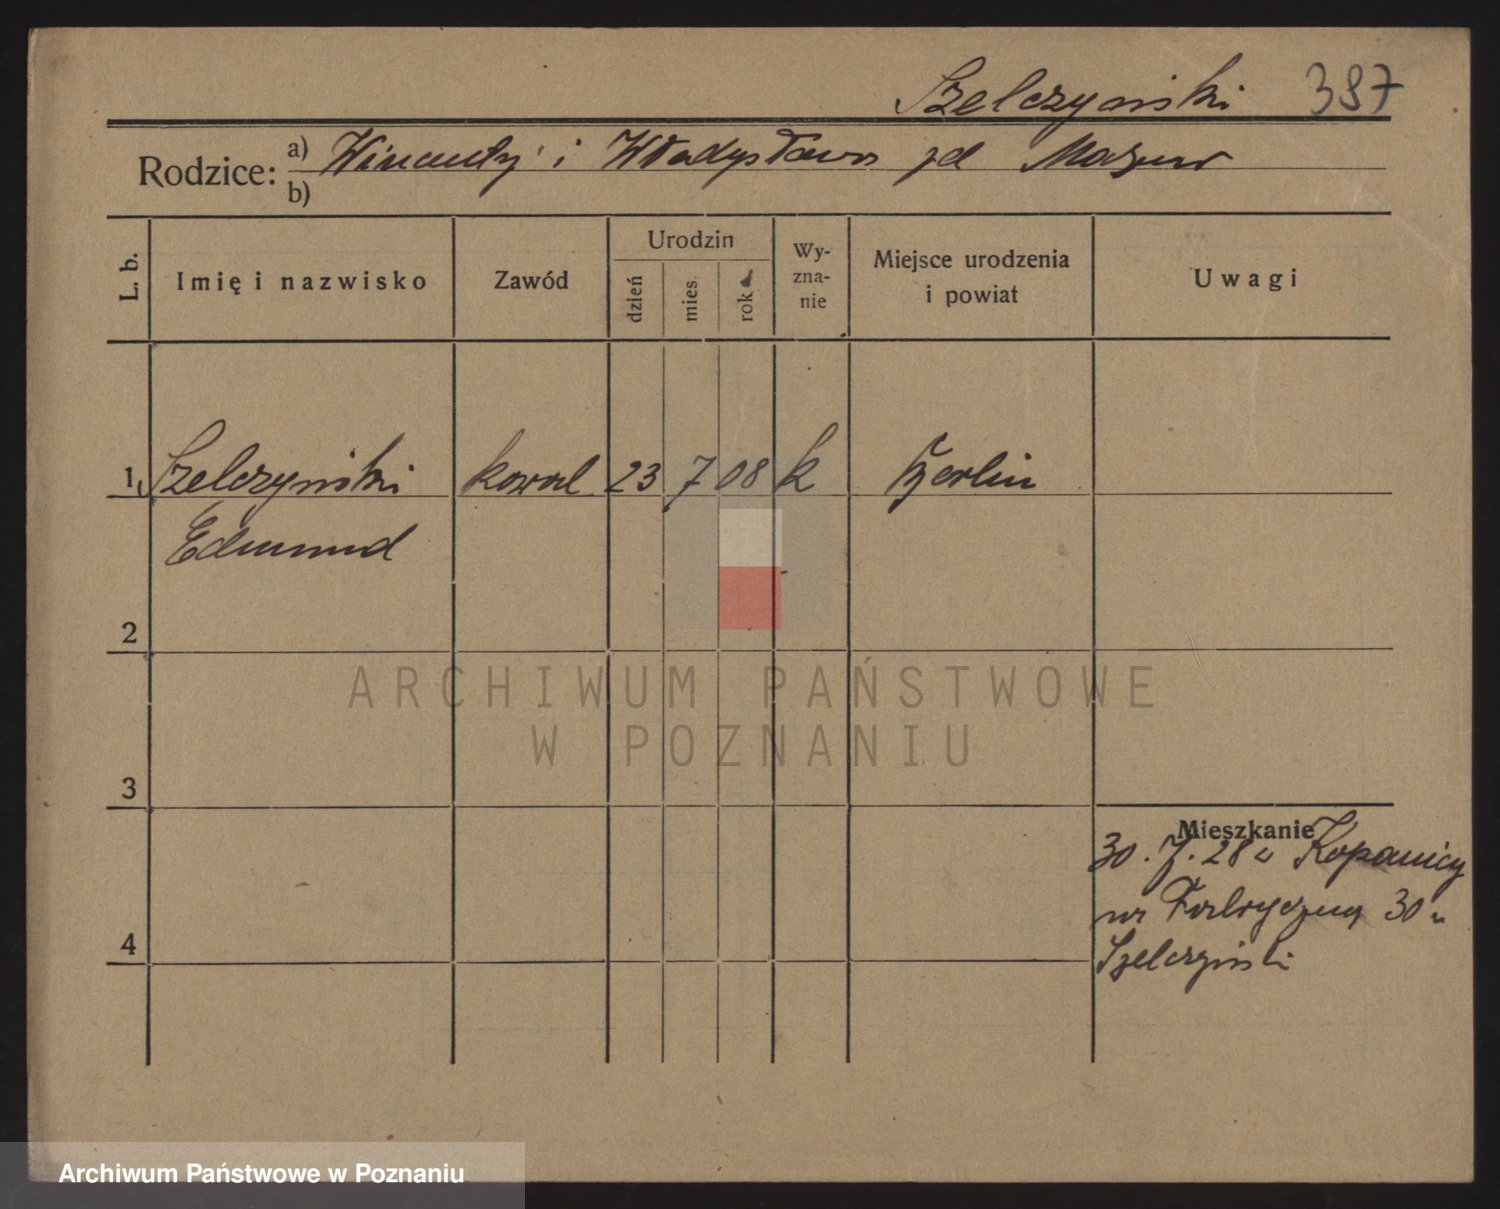 Szelczyński 387
Rodzice: a) Wincenty i Władysława zd Mazur
b)
L. b. Imię i nazwisko Zawód Urodzin dzień mies. rok Wy-zna-nie Miejsce urodzenia i powiat Uwagi
1 Szelczyński kowal 23 7 08 k Berlin
Edmund
2
3
Mieszkanie
30. 7. 28 z Kopanicy
na Fabryczną 30 u
4
Szelczyński
ARCHIWUM PAŃSTWOWE
W POZNANIU
Archiwum Państwowe w Poznaniu